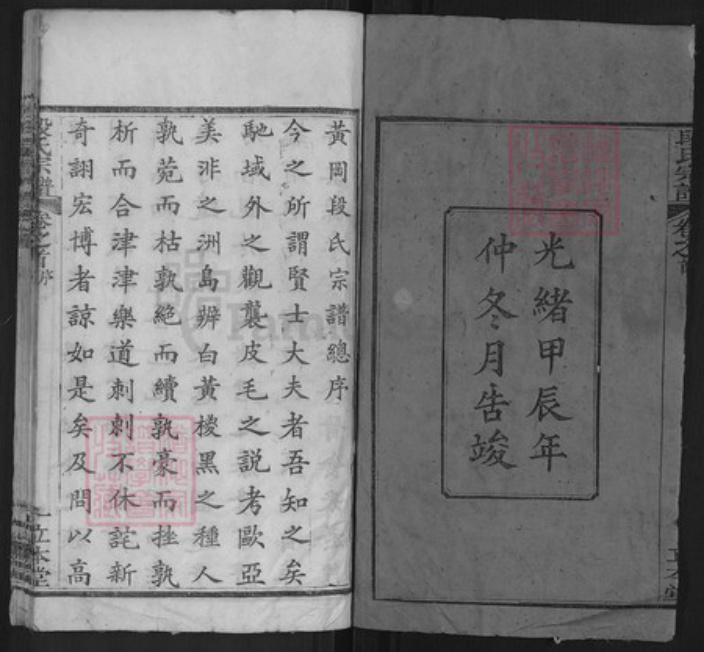 光緒甲辰年
仲冬月告竣
黃岡段氏宗譜總序
今之所謂賢士大夫者吾知之矣
馳域外之觀襲皮毛之說考歐亞
美非之洲島辨白黃椶黑之種人
孰菀而枯孰絕而續孰豪而挫孰
析而合津津樂道刺刺不休詫新
奇詡宏博者諒如是矣及問以高
段氏宗譜 卷之首 序
一立本堂